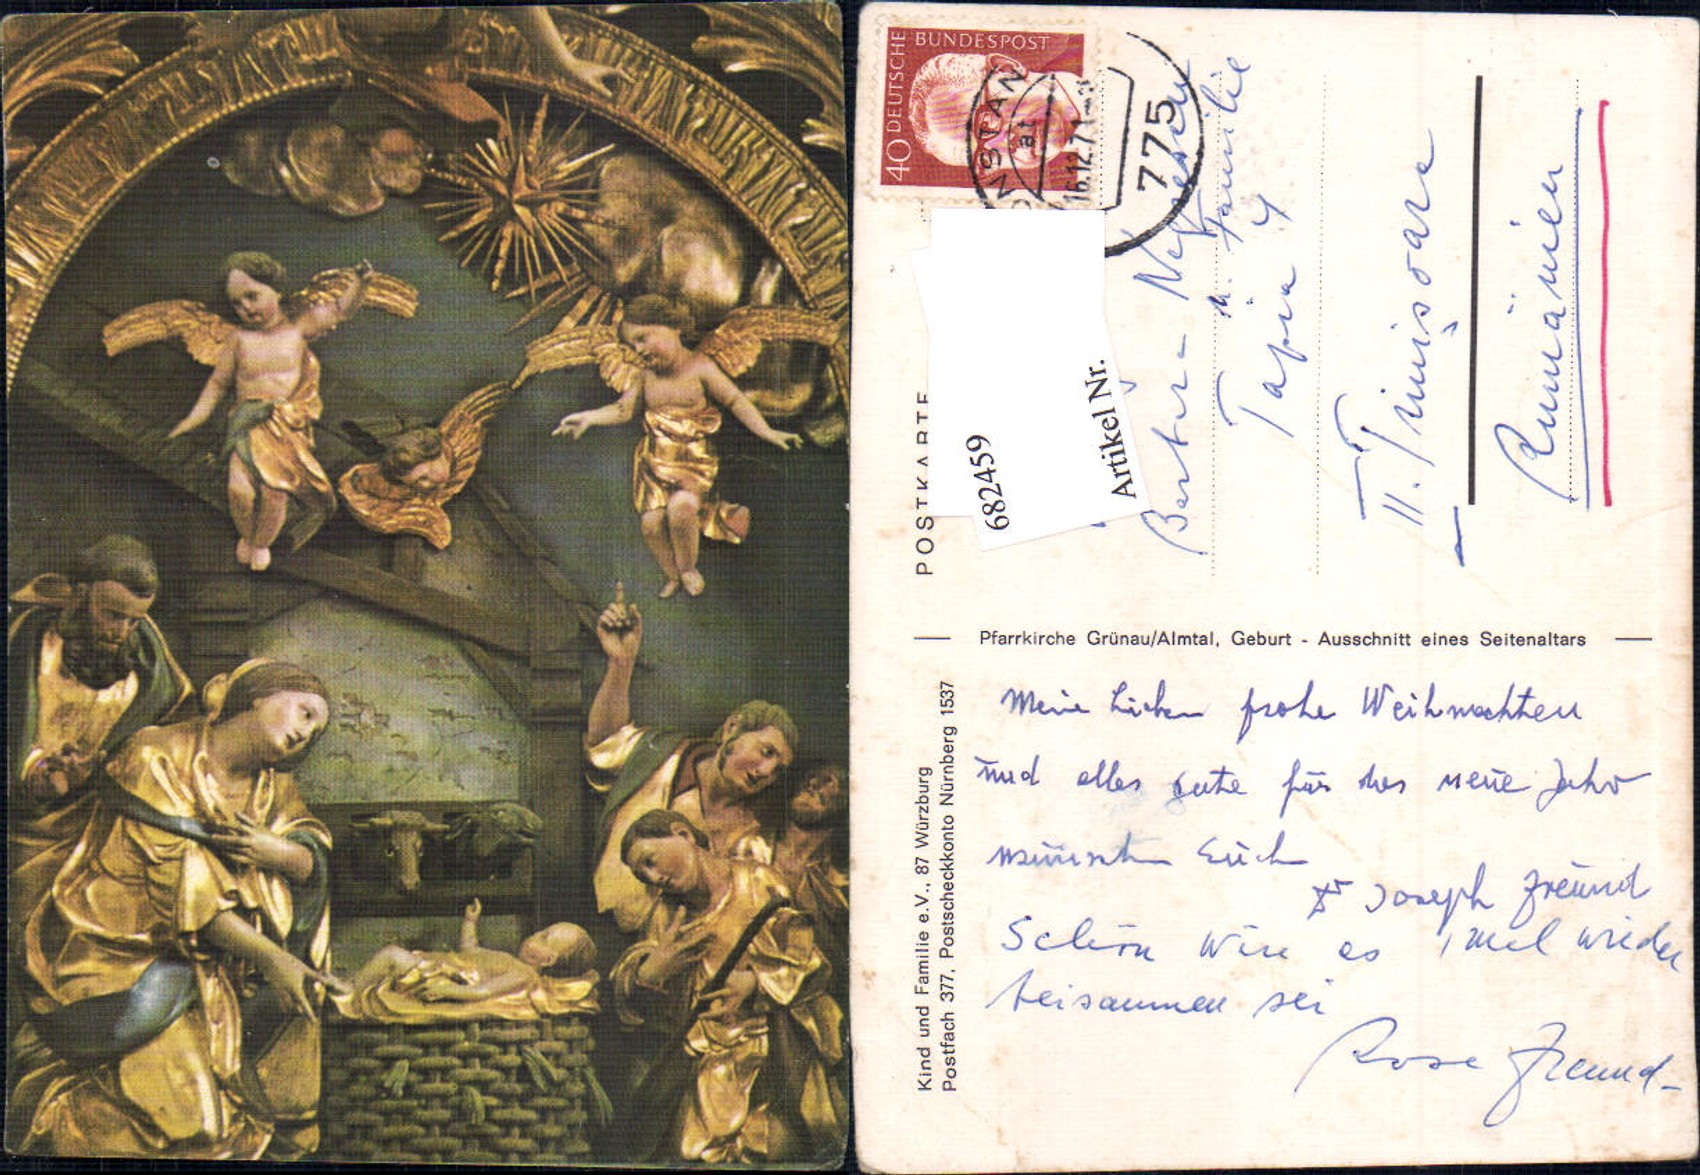 DEUTSCHE BUNDESPOST
40
16.12.71
775
POSTKARTE
682459
Artikel Nr.
Berta
u. Familie
Tapia 4
II. Timişoara
Rumänien
Pfarrkirche Grünau/Almtal, Geburt - Ausschnitt eines Seitenaltars
Kind und Familie e.V., 87 Würzburg
Postfach 377, Postscheckkonto Nürnberg 1537
Meine Lieben frohe Weihnachten
und alles gute für das neue Jahr
wünscht Euch
Joseph Freund
Schön wäre es, mal wieder
beisammen sei
Rose Freund